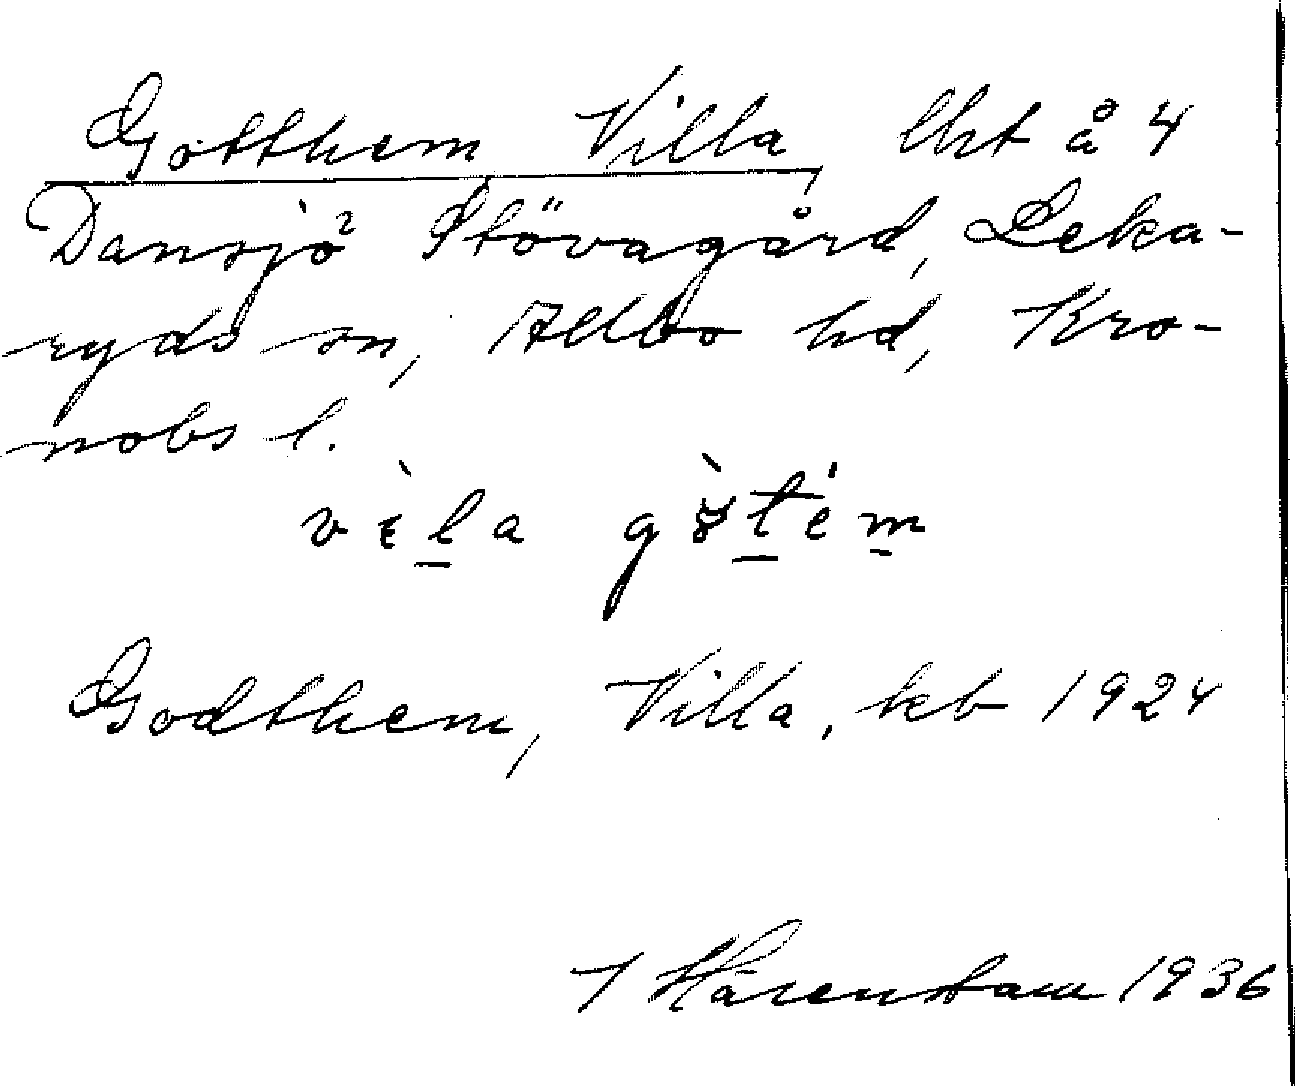 Gotthem, Villa, lht å 4
Dansjö Stövagård, Leka-
ryds sn, Allbo hd, Kro-
nobs l.
Godthem, Villa, kb 1924
I Hårenstam 1936